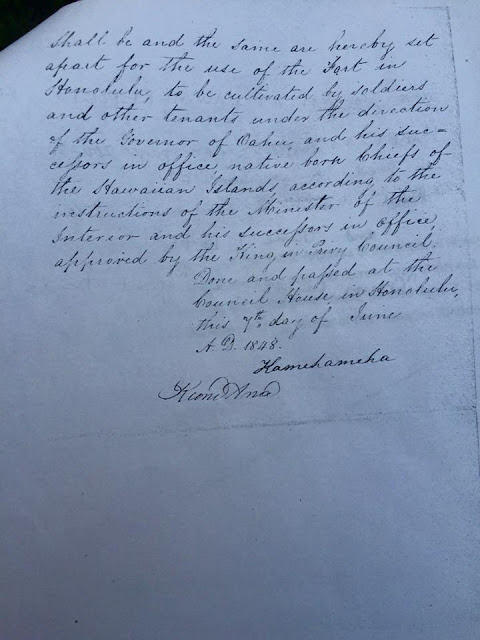 shall be and the same are hereby set
apart for the use of the Fort in
Honolulu, to be cultivated by soldiers
and other tenants under the direction
of the Governor of Oahu, and his suc=
cessors in office native born Chiefs of
the Hawaiian Islands, according to the
instructions of the Minister of the
Interior and his successors in office,
approved by the King in Privy Council.
Done and passed at the
Council House, in Honolulu,
this 7th day of June
A. D. 1848.
Kamehameha
Keoni Ana